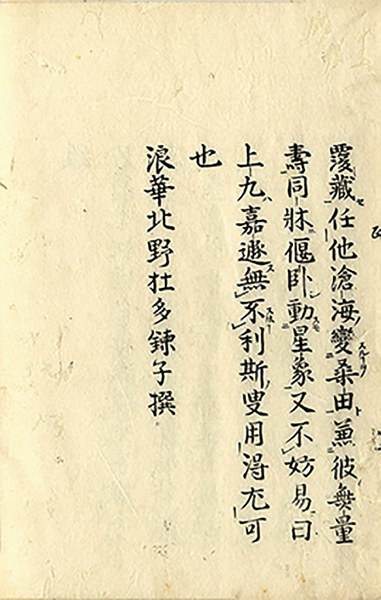 覆藏任他滄海變桑由兼彼無量
壽同牀偃卧動星象又不妨易曰
上九嘉遯無不利斯叟用淂尤可
也
浪華北野杜多鍊子撰